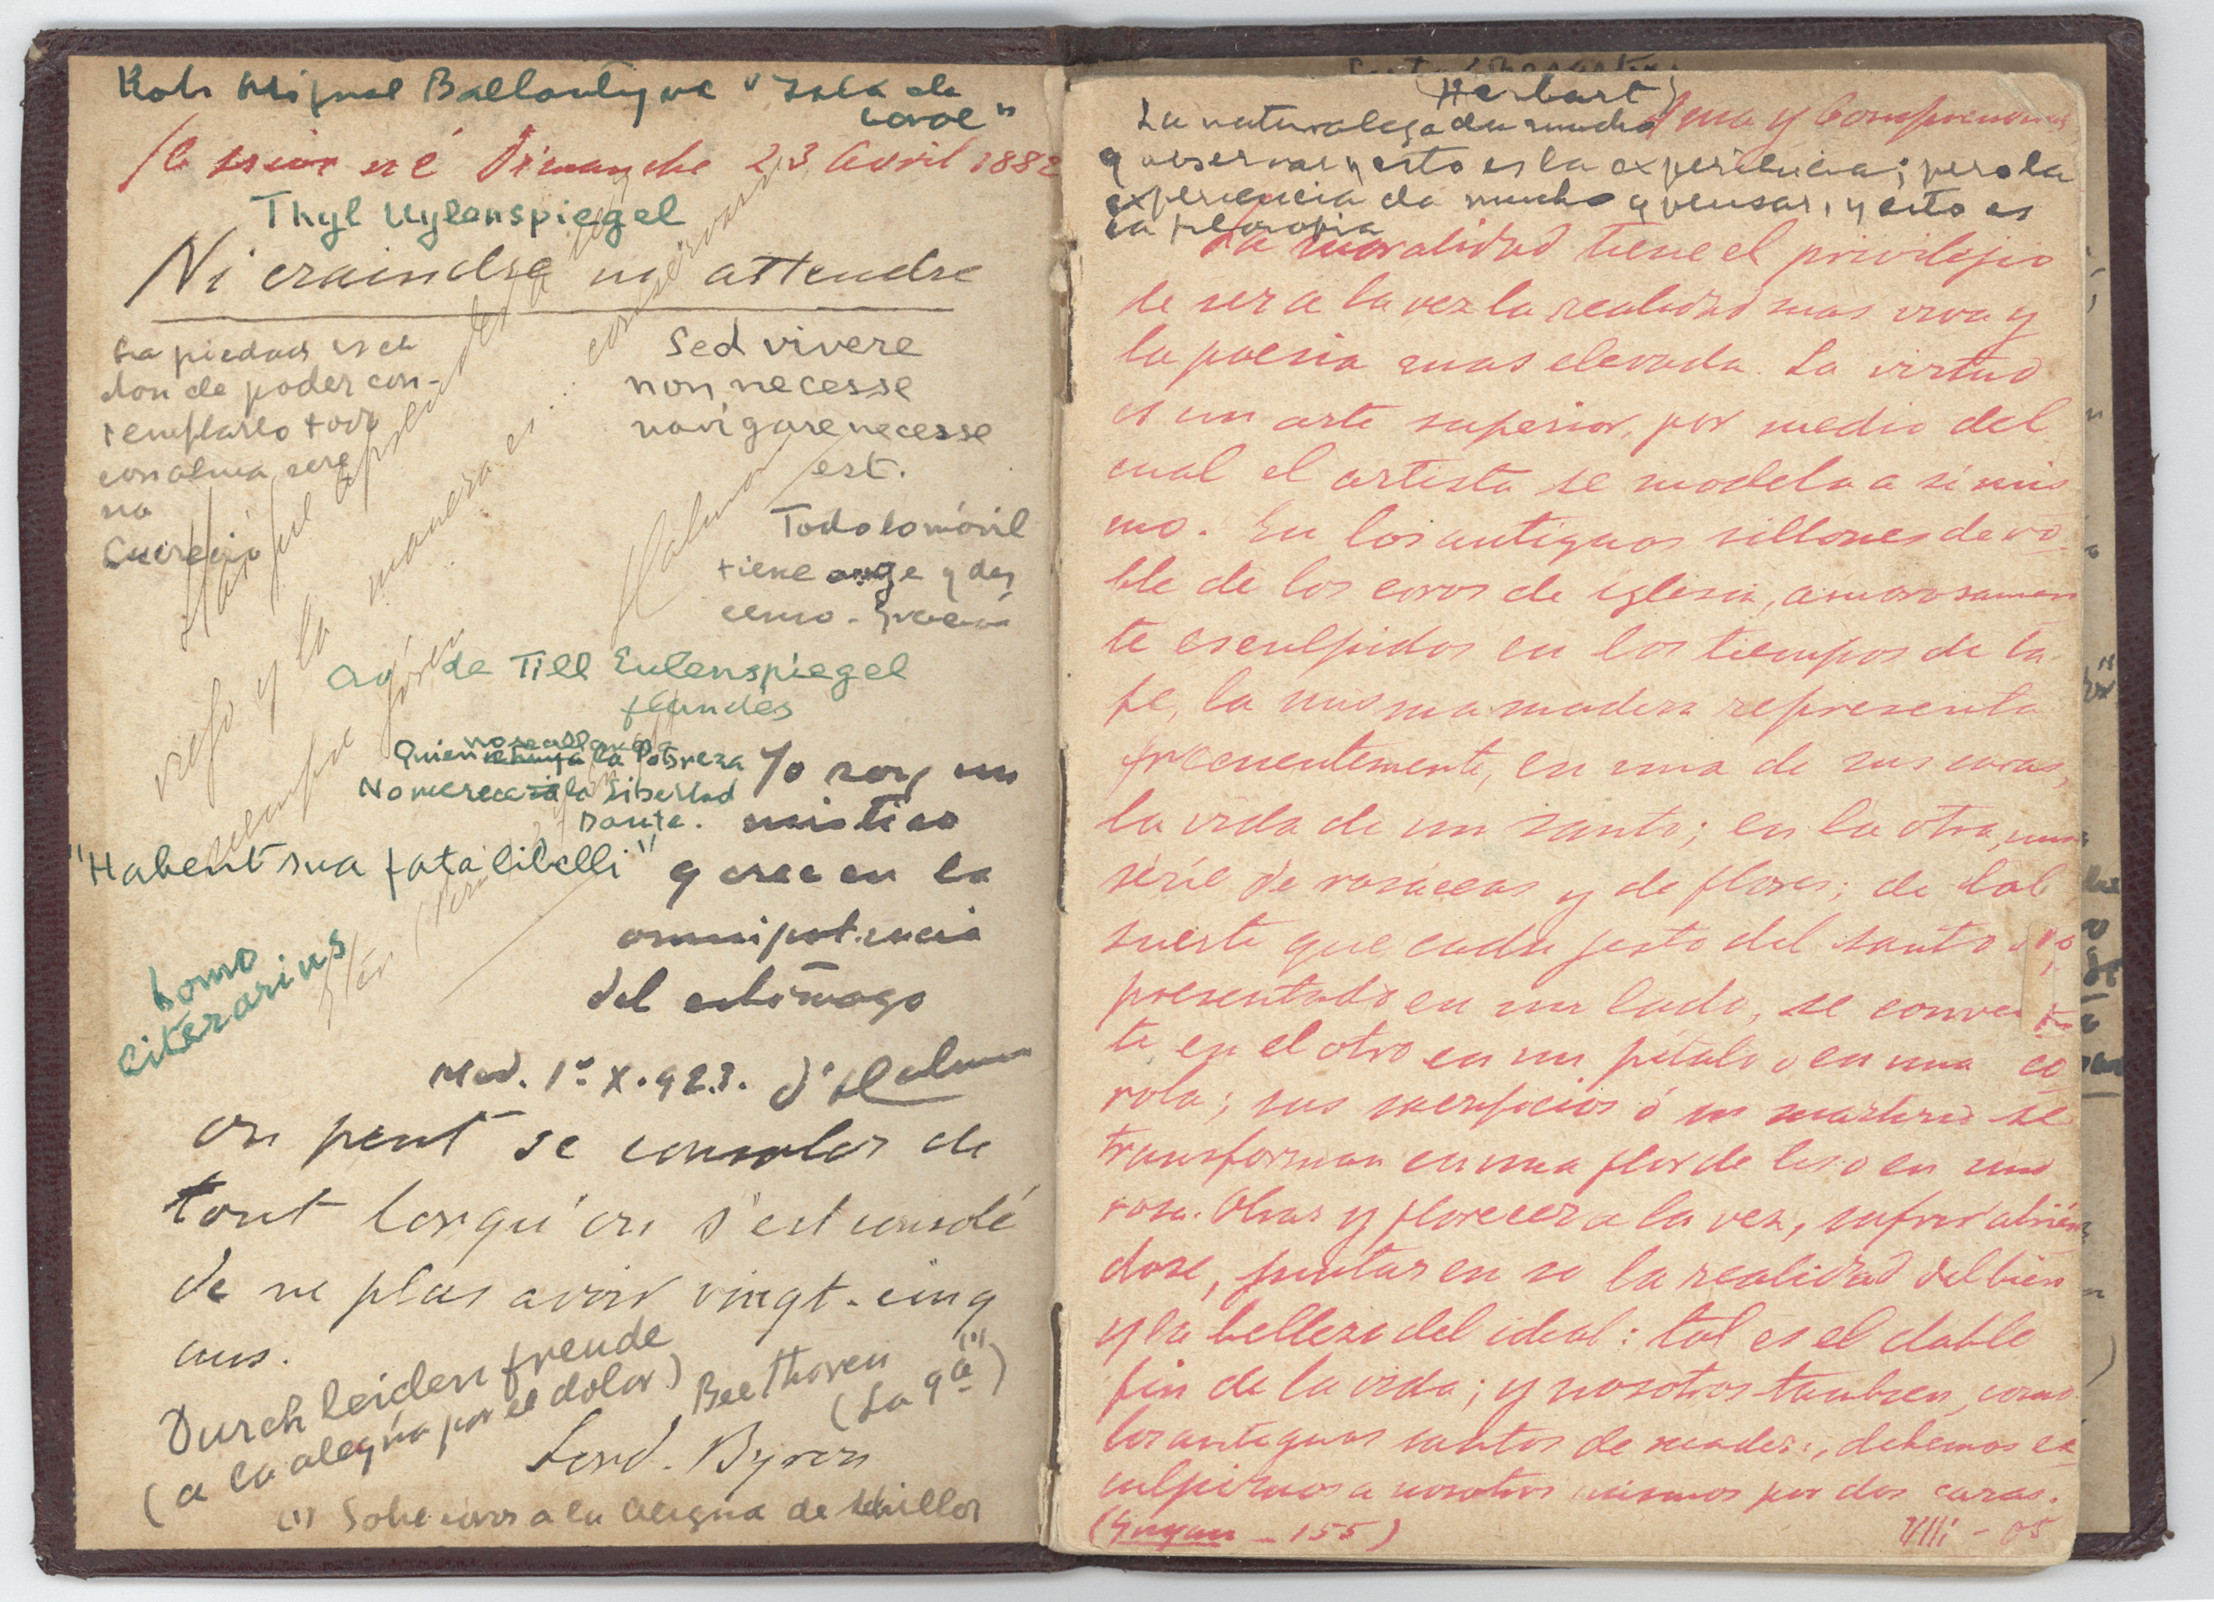 Miguel Ballantyne "Isla de
coral"
né Dimanche 23 Avril 1882
Thyl Uylenspiegel
Ni craindre ni attendre
La piedad es el
don de poder con-
templarlo todo
con alma sere
na
Lucrecio
Sed vivere
non necesse
navigare necesse
est.
Todo lo móvil
tiene auge y des
censo. Gracián
Hay que aprender a ser
viejo y la manera es conservarse
siempre joven
Halmar
de Till Eulenspiegel
flandes
no se allana a
Quien la Pobreza
No merece la Libertad
Dante.
"Habent sua fata libelli"
Yo soy un
místico
q cree en la
omnipotencia
del estómago
homo
literarius
Mad. 1º X. 923. d'Halmar
On peut se consoler de
tout lorsqu'on s'est consolé
de ne plus avoir vingt-cinq
ans.
Durch leiden freude
(a la alegría por el dolor) Beethoven
(La 9ª) (1)
Lord. Byron
(1) Sobre coros a la Alegría de Schiller
(Herbart)
La naturaleza da mucho
q observar, y esto es la experiencia; pero la
experiencia da mucho q pensar, y esto es
la filosofía
La moralidad tiene el privilejio
de ser a la vez la realidad mas viva y
la poesia mas elevada. La virtud
es un arte superior, por medio del
cual el artista se modela a si mis
mo. En los antiguos sillones de ro-
ble de los coros de iglesia, amorosamen
te esculpidos en los tiempos de la
fe, la misma madera representa
frecuentemente, en una de sus caras,
la vida de un santo; en la otra, una
série de rosáceas y de flores; de tal
suerte que cada jesto del santo
presentado en un lado, se convier
te en el otro en un pétalo o en una co
rola; sus sacrificios ó su martirio se
transforman en una flor de lis o en una
rosa. Obrar y florecer a la vez, sufrir abrién
dose, juntar en si la realidad del bien
y la belleza del ideal: tal es el doble
fin de la vida; y nosotros tambien, como
los antiguos santos de madera, debemos es
culpirnos a nosotros mismos por dos caras.
(Guyau - 155) VIII - 05